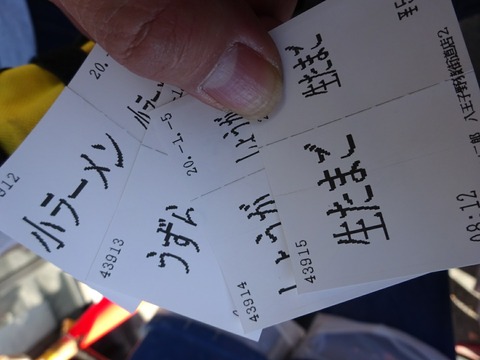 小ラーメン
43913
小ラー
20.-1.-5
うずら
43914
しょうが
しょうが
43915
生たまご
生たまご
八王子野猿街道店2
08:12